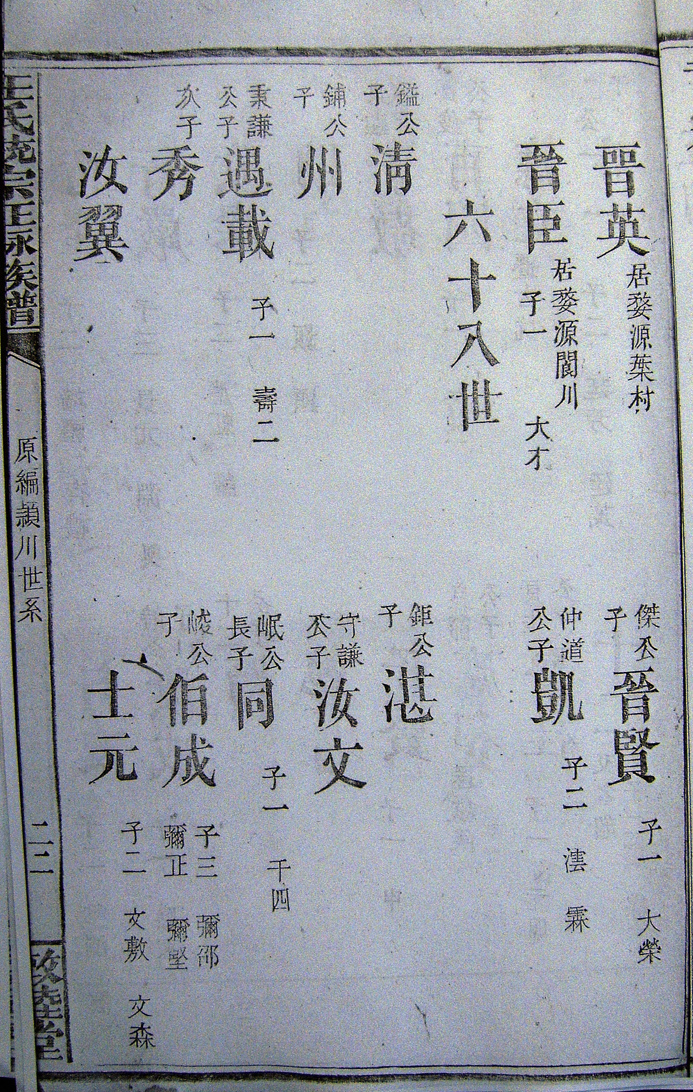 晉英 居婺源葉村
傑公子 晉賢 子一 大榮
晉臣 居婺源閬川 子一 大才
仲道公子 凱 子二 澐 霖
六十八世
鎰公子 清
鉅公子 湛
鋪公子 州
守謙公子 汝文
秉謙公子 遇載 子一 壽二
岷公長子 同 子一 千四
次子 秀
峻公子 伯成 子三 彌邵 彌正 彌堅
汝翼
士元 子二 文敷 文森
王氏統宗正脉族譜
原編頴川世系
二三